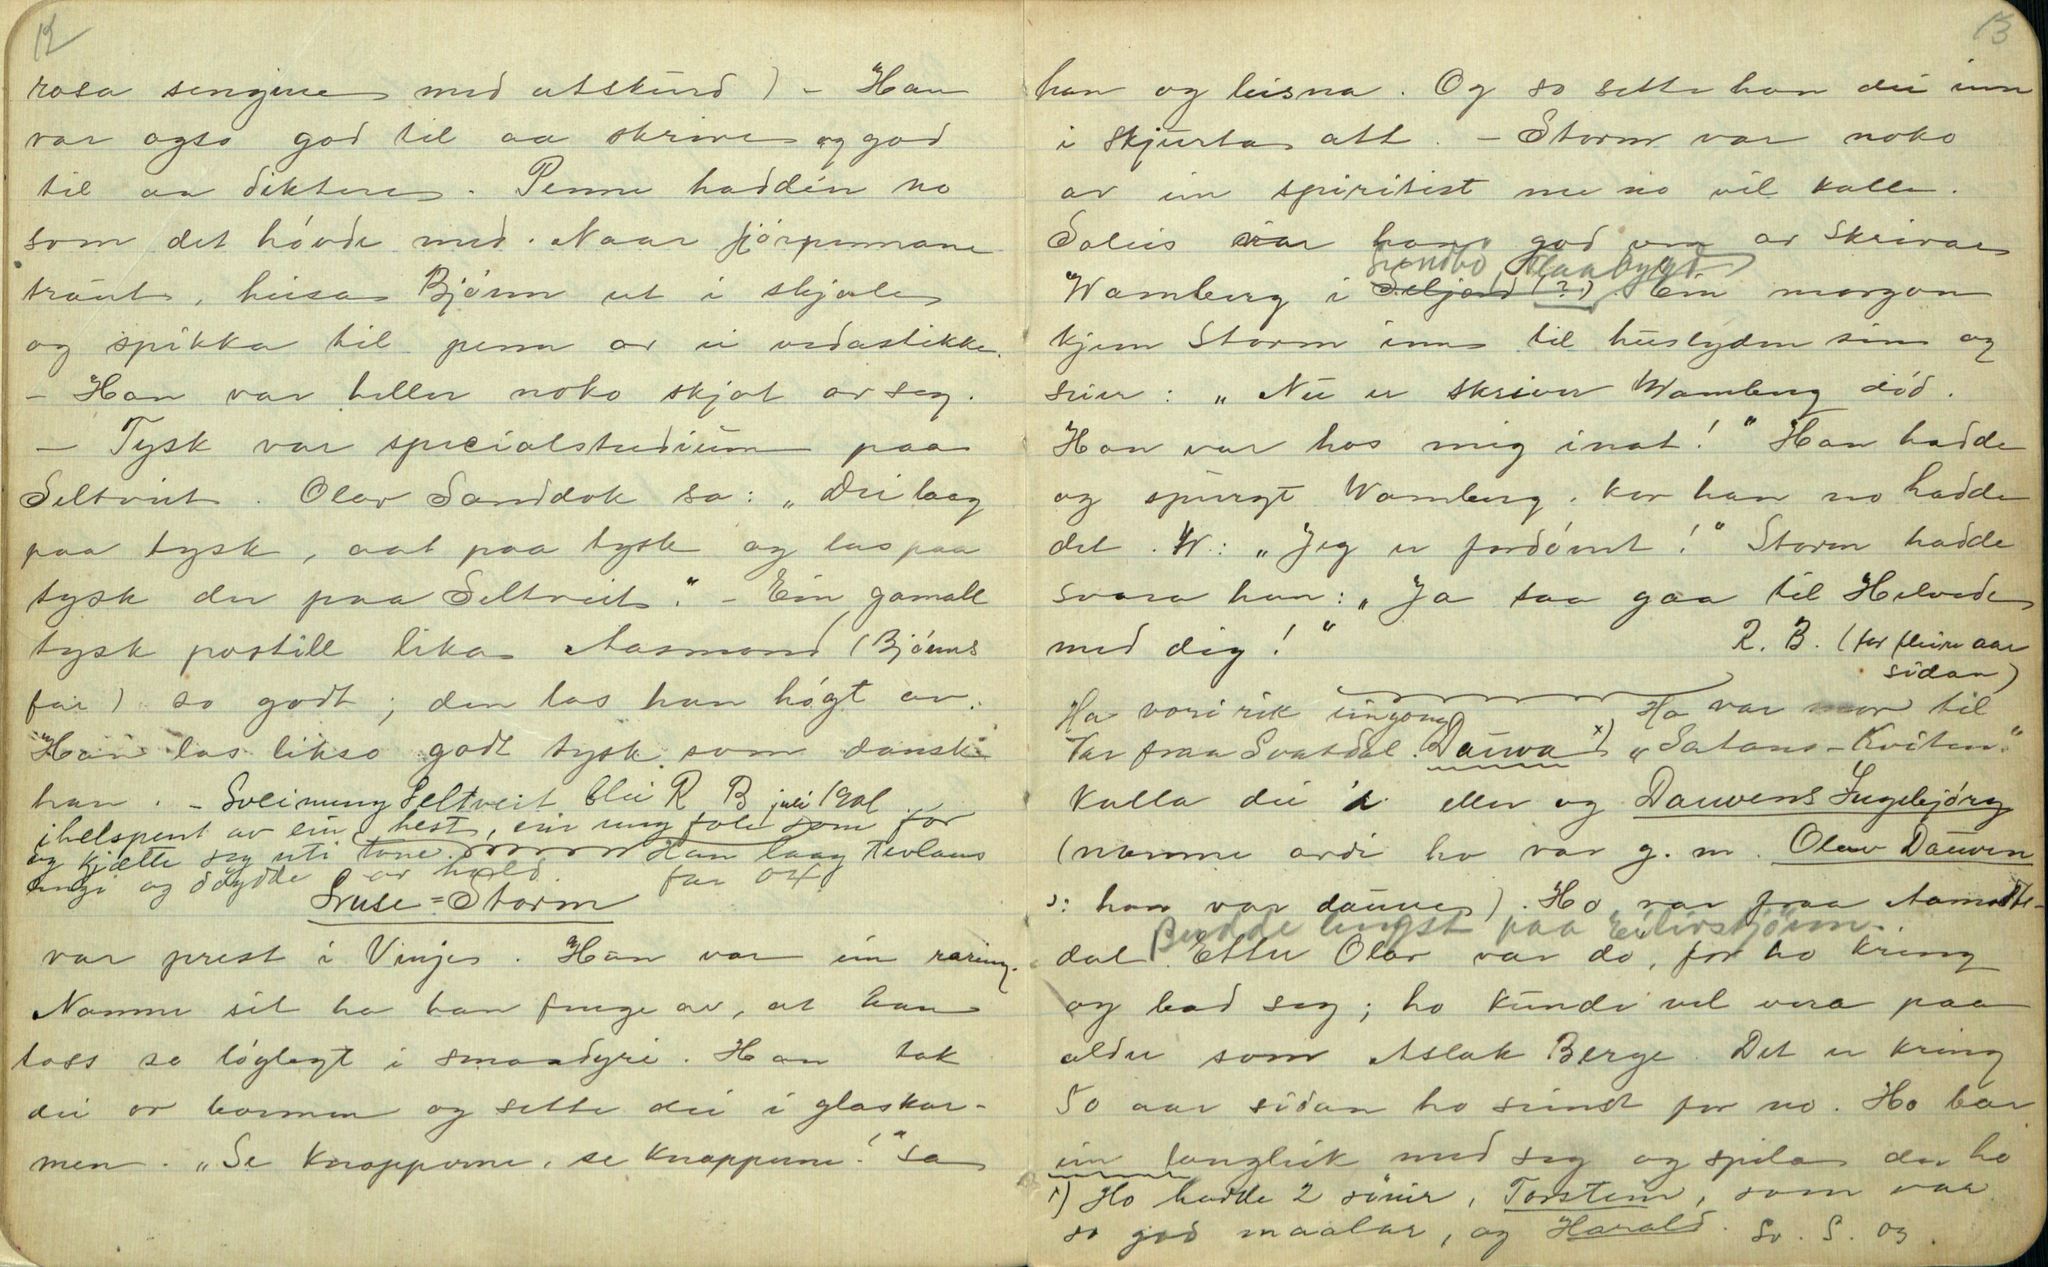 12
rosa sengine med utskurd) - Han
var ogso god til aa skrive og god
til aa diktere. Penne hadden no
som det høvde med. Naar fjørpennane
traut, heisa Bjønn ut i skjole
og spikka til penn or ei vedastikke.
- Han var heller noko skjot or seg.
- Tysk var specialstudium paa
Seltveit. Olav Sanddok sa: „Dei laag
paa tysk, aat paa tysk og las paa
tysk der paa Seltveit." - Ein gamall
tysk postill lika Aasmond (Bjønns
far) so godt; den las han høgt av.
Han las likso godt tysk som dansk
han. - Sveinung Seltveit blei R B juli 1901
ihelspent av ein hest, ein ung fole som for
og kjætte seg uti tone. Han laag Tevlaus
lengi og døydde av hald. far 084
Gruse=Storm
var prest i Vinje. Han var ein raring.
Namne sit ha han fenge av, at han
lass so løglegt i smaadyri. Han tok
dei or barmen og sette dei i glaskar-
men. „Se knapperne, se knapperne!" sa
13
han og leisna. Og so sette han dei inn
i skjurta att. - Storm var noko
av ein spiritist me no vil kalle.
Soleis var han god ven av skrivar
Sundbo, Flaabygd
Wamberg i Seljord (?). Ein morgon
kjem Storm inn til huslyden sin og
seier: „Nu er skriver Wamberg død.
Han var hos mig inat!" Han hadde
og spurgt Wamberg, kor han no hadde
det. W.: „Jeg er fordømt!" Storm hadde
svara han: „Ja saa gaa til Helvede
med dig!" R. B. (for fleire aar
sidan)
Ha vori rik eingong Ho var mor til
Var fraa Svatdal. Dauva x) „Satans-Kviten."
Kalla dei 'a eller og Dauvens Ingebjørg
(namne avdi ho var g. m. Olav Dauven
ɔ: han var dauve). Ho var fraa Aamotts-
Budde lengst paa Eilivstjønn.
dal. Etter Olav var do, for ho kring
og bad seg; ho kunde vel vera paa
alder som Aslak Berge. Det er kring
50 aar sidan ho seinst for no. Ho bar
ein langleik med seg og spela der ho
x) Ho hadde 2 søner, Torstein, som var
so god maalar, og Harald. Sv. S. og.